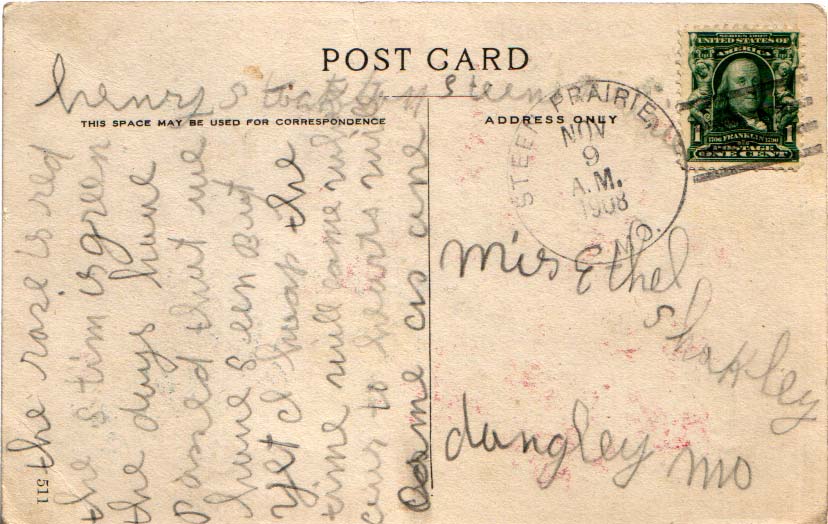 POST CARD
henry
THIS SPACE MAY BE USED FOR CORRESPONDENCE
ADDRESS ONLY
SERIES 1902
UNITED STATES OF
AMERICA
1 FRANKLIN 1
POSTAGE
ONE CENT
STEEN PRAIRIE
NOV
9
A.M.
1908
MO.
the rose is red
the stim is green
the days have
Passed that we
have Seen But
yet I hoap the
time will come
ours to hearts
Come as one
Mis Ethel
Shakley
dungley mo
511